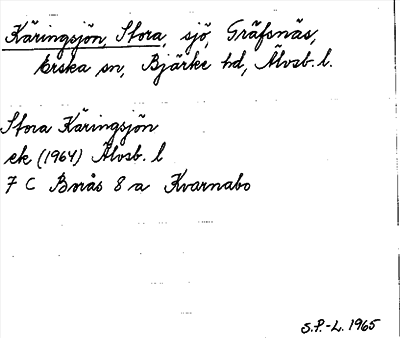 Käringsjön, Stora, sjö, Gräfsnäs,
Erska sn, Bjärke hd, Älvsb. l.
Stora Käringsjön
ek (1964) Älvsb. l
7 C Borås 8 a Kvarnabo
S.P.-L. 1965